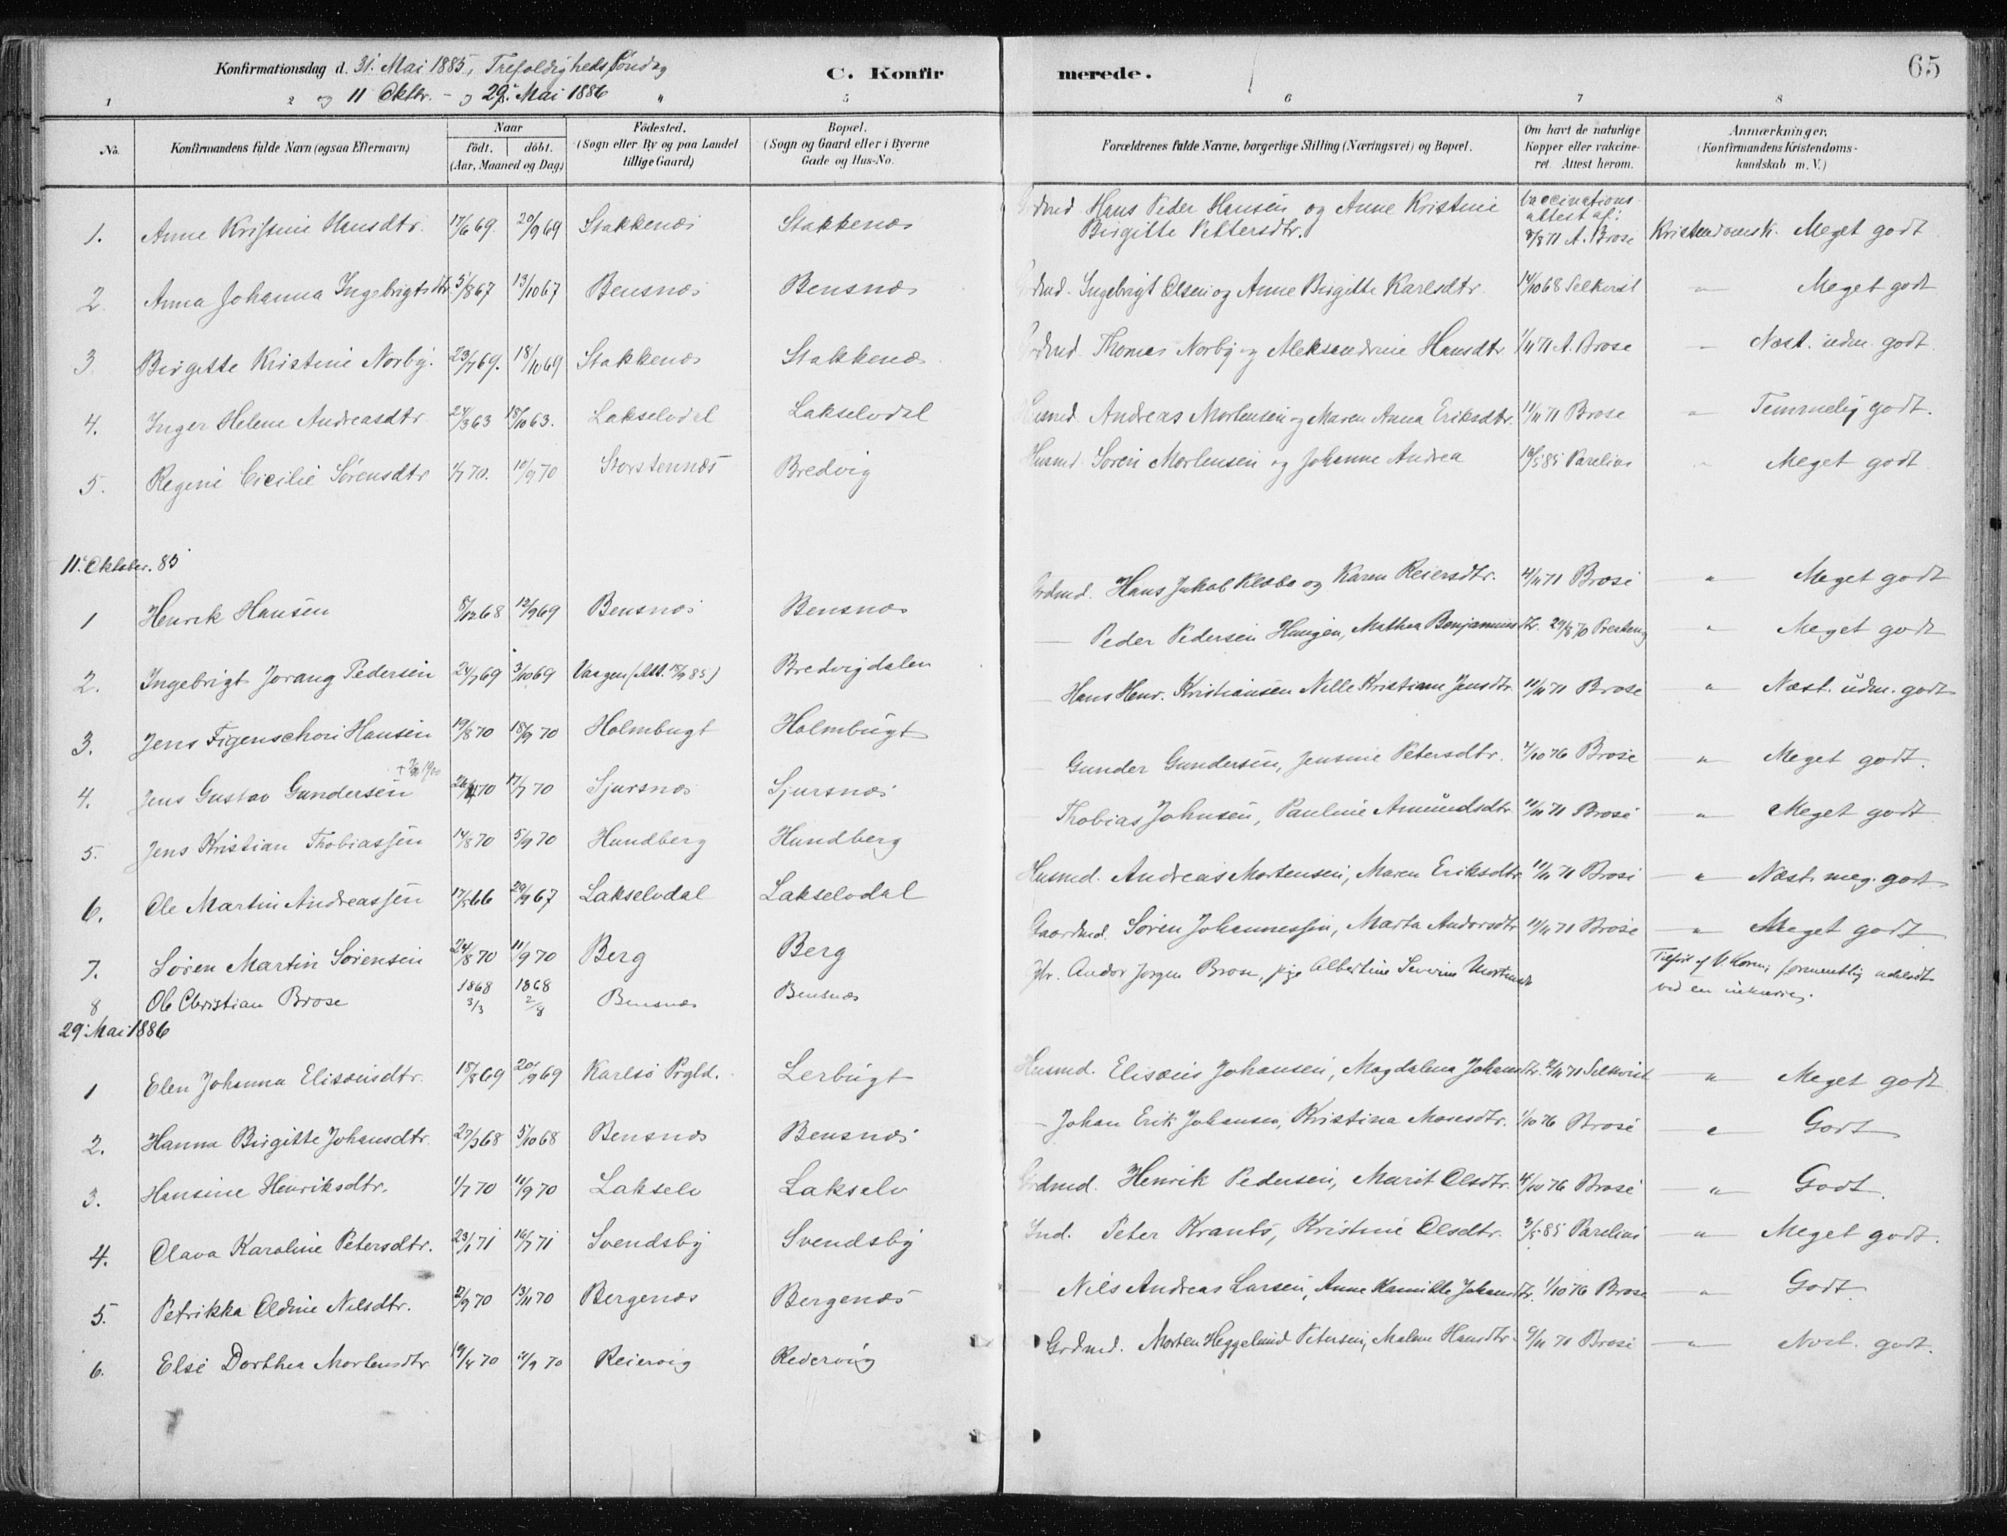 65
Konfirmationsdag d. 31. Mai 1885, Trefoldigheds Søndag
og 11 Oktbr. - og 29. Mai 1886
C. Konfirmerede.
1 2 " 5 6 7 8
No. Konfirmandens fulde Navn (ogsaa Efternavn) Naar født. døbt. (Aar, Maaned og Dag) Fødested. (Sogn eller By og paa Landet tillige Gaard) Bopæl. (Sogn og Gaard eller i Byerne Gade og Hus-No. Forældrenes fulde Navne, borgerlige Stilling (Næringsvei) og Bopæl. Om havt de naturlige Kopper eller vakcineret. Attest herom. Anmærkninger, (Konfirmandens Kristendomskundskab m. V.)
1. Anne Kristine Hansdtr. 17/6 69. 20/9 69 Stakkenæs Stakkenæs Grdmd. Hans Peder Hansen og Anne Kristine Birgitte Pettersdtr. Vaccinationsattest af: 8/8 71 A. Brose Kristendomsk. Meget godt
2. Anna Johanna Ingebrigtsdtr 5/8 67 13/10 67 Bensnæs Bensnæs Grdmd. Ingebrigt Olsen og Anne Birgitte Karlsdtr 14/10 68 Selkvist " Meget godt
3. Birgitte Kristine Norby. 23/7 69. 18/10 69 Stakkenæs Stakkenæs Grdmd. Thomas Norby og Aleksandrine Hansdtr 1/11 71 A. Brose " Næst. udm. godt.
4. Inger Helene Andreasdtr. 27/3 63 18/10 63. Lakselvdal Lakselvdal Husmd. Andreas Mortensen og Maren Anna Eriksdtr. 11/11 71 Brose " Temmelig godt.
5. Regine Cicilie Sørensdtr 1/7 70. 10/9 70 Storstennæs Bredvig Husmd. Søren Mortensen og Johanne Andrea 10/5 85 Parelius " Meget godt
11. Oktober. 85
1 Henrik Hansen 8/12 68 12/9 69 Bensnæs Bensnæs Grdmd. Hans Jakob Klæbo og Karen Reiersdtr. 4/11 71 Brose " Meget godt
2. Ingebrigt Jorang Pedersen 24/7 69 3/10 69 Vaagen (Att. 15/9 85) Bredvigdalen — Peder Pedersen Haugen, Mathea Benjaminsdtr. 29/8 70 " Meget godt
3. Jens Figenschou Hansen 19/8 70 18/9 70 Holmbugt Holmbugt — Hans Henr. Kristiansen Nille Kristiane Jensdtr. 11/11 71 Brose " Næst. udm. godt
4. Jens Gustav Gundersen 26/4 70 17/7 70 Sjursnæs Sjursnæs — Gunder Gundersen, Jensine Petersdtr. 4/10 76 Brose " Meget godt.
5. Jens Kristian Thobiassen 14/8 70 5/9 70 Hundberg Hundberg — Thobias Johnsen, Pauline Amundsdtr 11/11 71 Brose " Meget godt
6. Ole Martin Andreassen 17/5 66 29/9 67 Lakselvdal Lakselvdal Husmd. Andreas Mortensen, Maren Eriksdtr 11/11 71 Brose — " Næst. meg. godt
7. Søren Martin Sørensen 24/8 70 11/9 70 Berg Berg Gaardmd. Søren Johannessen, Marta Andorsdtr 11/11 71 Brose — " Meget godt
8 Ole Christian Brose 1868 3/3 1868 2/8 Bensnæs Bensnæs Andor Jørgen Brose, pige Albertine Severine Mortensdtr Tilført af formentlig udeladt ved en inkurie.
29. Mai 1886
1 Elen Johanna Elisæusdtr. 15/8 69 20/9 69 Karlsö Prgld. Lerbugt Husmd. Elisæus Johansen, Magdalena Johansdtr. 11/11 71 Selkvist — " Meget godt
2. Hanna Birgitte Johansdtr. 27/7 68 5/10 68 Bensnæs Bensnæs — Johan Erik Johansen, Kristina Monsdtr. 1/10 76 Brose — " Godt
3. Hansine Henriksdtr. 1/7 70 11/9 70 Lakselv Lakselv Grdmd. Henrik Pedersen, Marit Olsdtr. 4/10 76 Brose — " Godt.
4. Olava Karoline Petersdtr. 23/1 71 16/7 71 Svendsby Svendsby Ind. Peter Krants, Kristine Olsdtr. 3/5 85 Parelius — " Meget godt.
5. Petrikka Oldine Nilsdtr. 2/9 70 13/11 70 Bergenæs Bergenæs Nils Andreas Larsen, Anne Kamilla Johansdtr. 1/10 76 Brose — " Godt
6. Else Dorthea Mortensdtr 19/4 70 11/9 70 Reiervig Reiervig Grdmd. Morten Heggelund Petersen, Malene Hansdtr. 6/11 71 Brose — " Næst. godt.